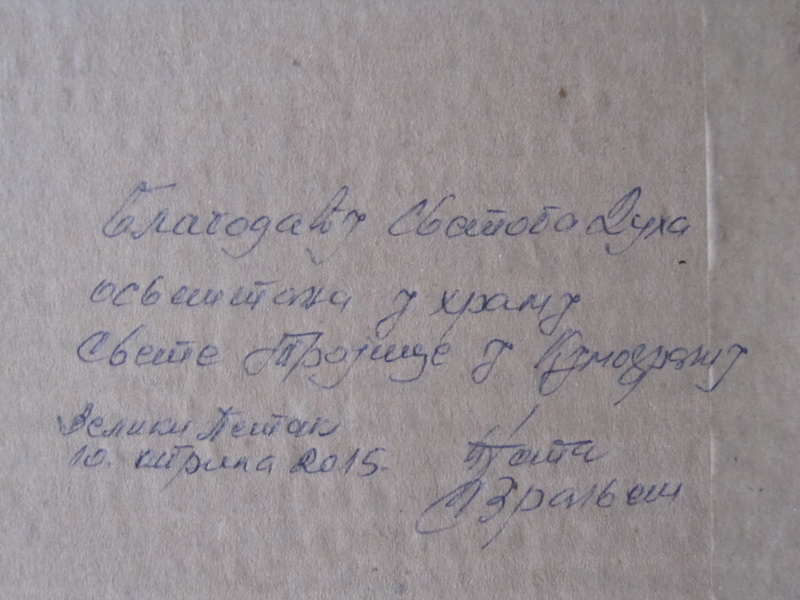 Благодаћу Светога Духа
освештана у храму
Свете Тројице у Кумодражу
Велики Петак
10. априла 2015.